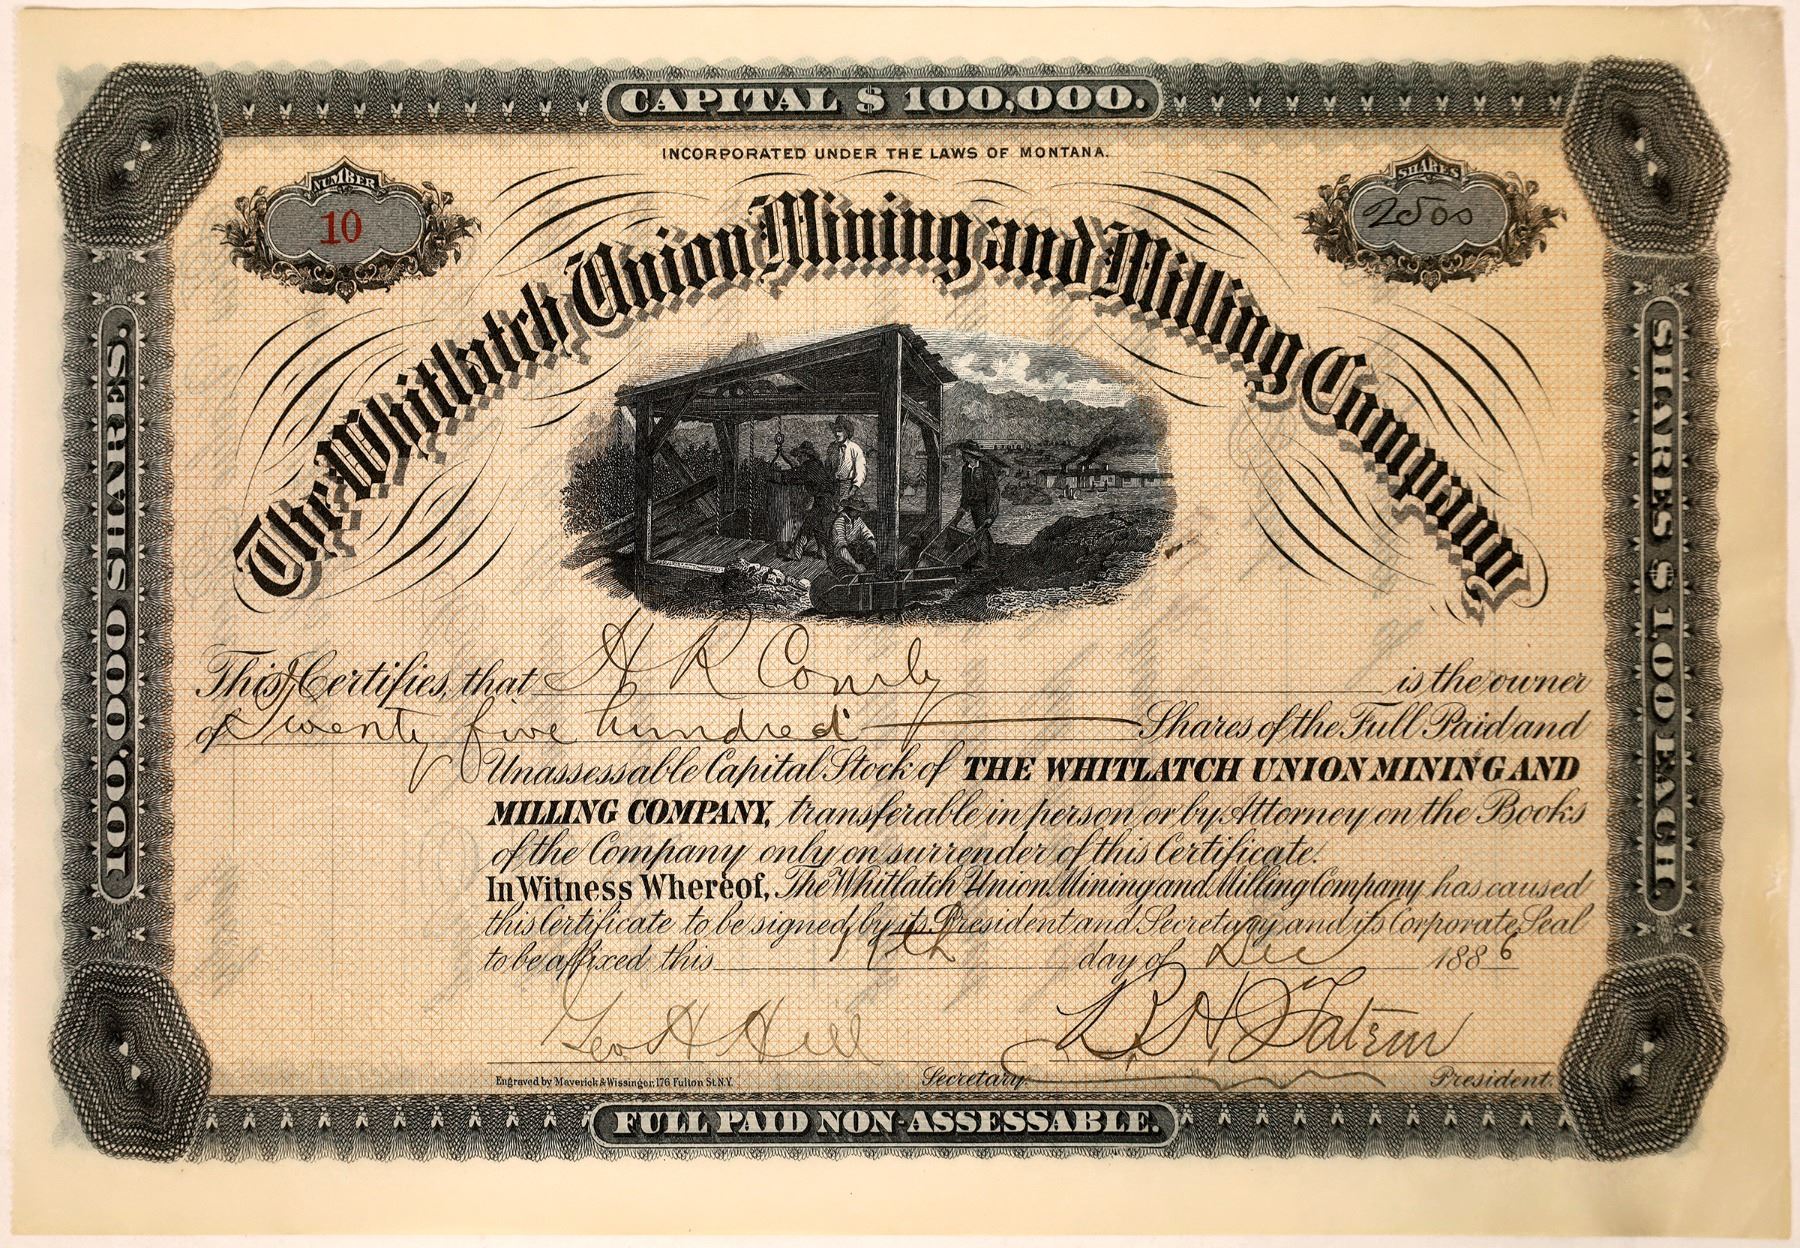 CAPITAL $ 100,000.
INCORPORATED UNDER THE LAWS OF MONTANA.
NUMBER
10
SHARES
2500
The Whitlatch Union Mining and Milling Company
100,000 SHARES.
SHARES $ 1,00 EACH.
This Certifies, that H R Comly is the owner
of Twenty five hundred Shares of the Full Paid and
Unassessable Capital Stock of THE WHITLATCH UNION MINING AND
MILLING COMPANY, transferable in person or by Attorney on the Books
of the Company only on surrender of this Certificate.
In Witness Whereof, The Whitlatch Union Mining and Milling Company has caused
this Certificate to be signed by its President and Secretary and its Corporate Seal
to be affixed this 19th day of Dec 1886
Geo H Hill
Engraved by Maverick & Wissinger, 176 Fulton St. N.Y.
Secretary.
President.
FULL PAID NON-ASSESSABLE.